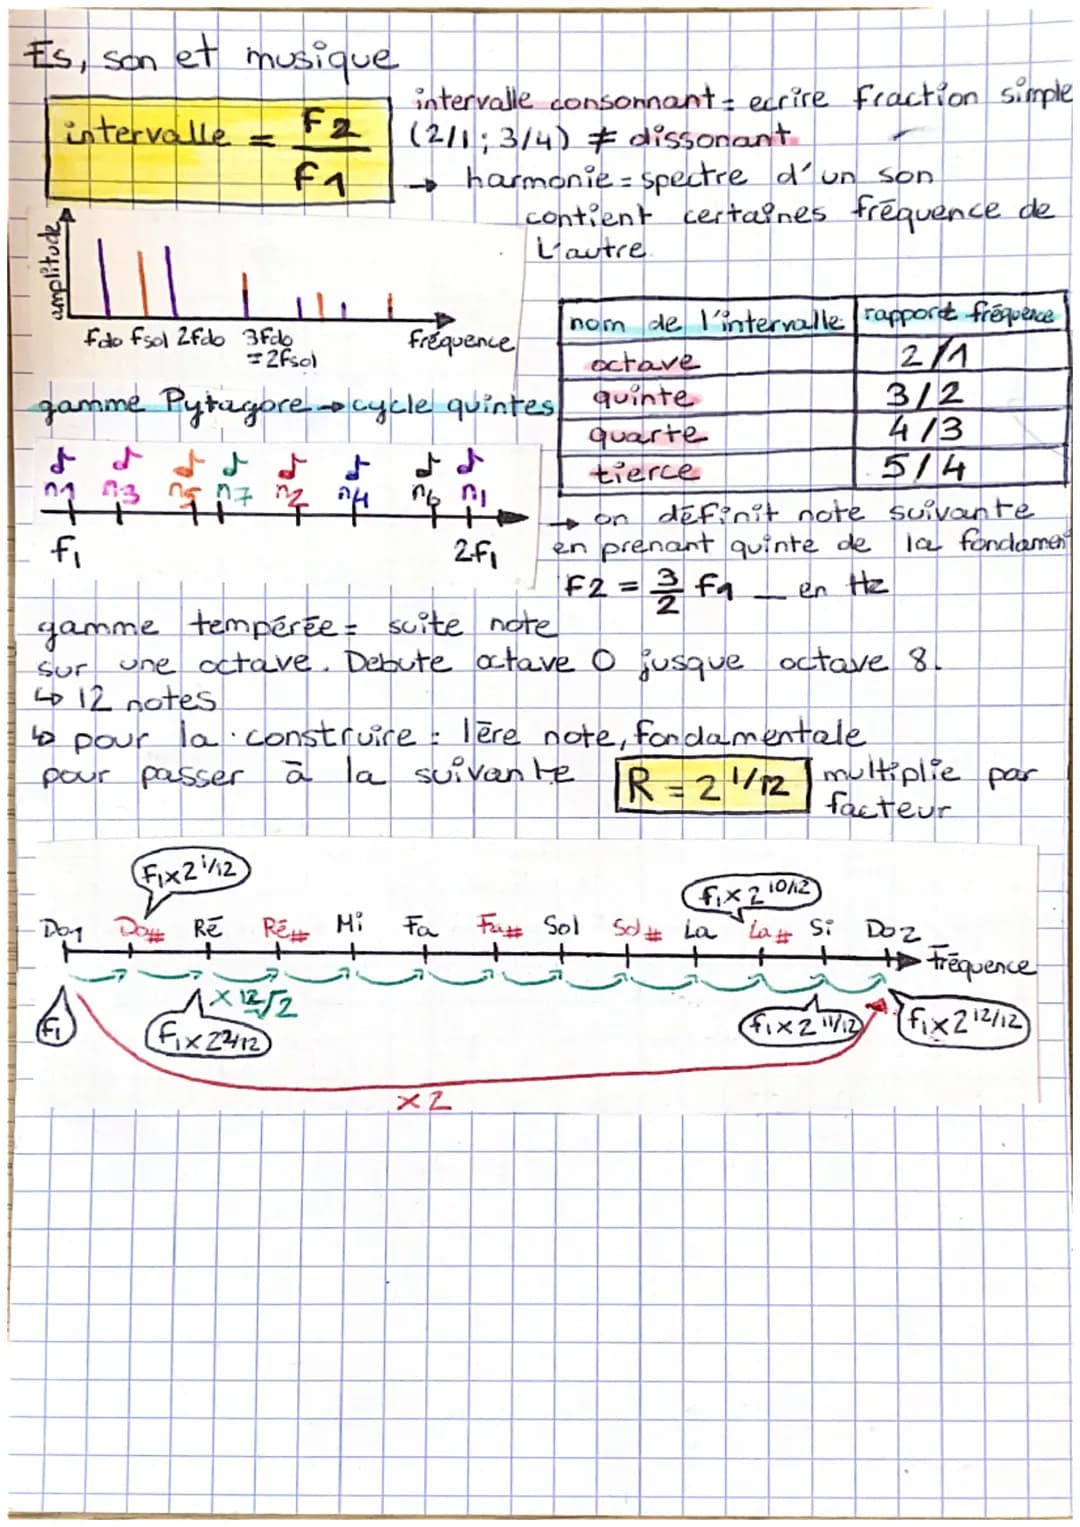 Es, son et musique
intervalle = F2/F1
intervalle consonnant = ecrire fraction simple
(2/1 ; 3/4) ≠ dissonant
→ harmonie = spectre d'un son
contient certaines fréquence de
L'autre
amplitude
fdo fsol 2fdo 3fdo
= 2fsol
fréquence
nom de l'intervalle rapport fréquence
octave 2/1
quinte 3/2
quarte 4/3
tierce 5/4
gamme Pytagore → cycle quintes
n1 n3 n5 n7 n2 n4 n6 n1
f1 2f1
→ on définit note suivante
en prenant quinte de la fondamen
F2 = 3/2 f1 _ en Hz
gamme tempérée = suite note
sur une octave. Debute octave 0 jusque octave 8.
↳ 12 notes
↳ pour la construire : 1ère note, fondamentale
pour passer à la suivante R = 2^1/12 multiplie par
facteur
f1x2^1/12
f1x2^10/12
Do1 Do# Ré Ré# Mi Fa Fa# Sol Sol# La La# Si Do2
fréquence
x 12√2
f1
f1x2^2/12
f1x2^11/12
f1x2^12/12
x2